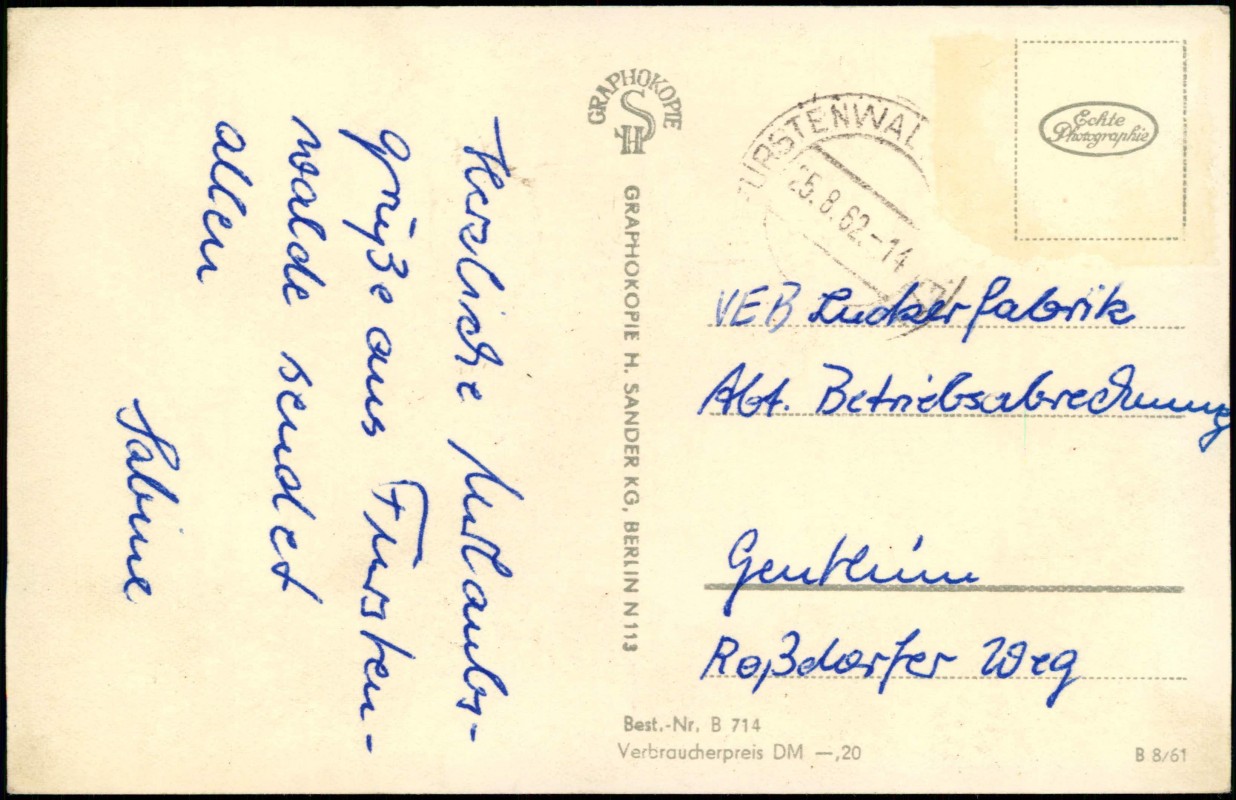 Herzliche Urlaubs-
grüße aus Fürsten-
walde sendet
allen
Sabine
GRAPHOKOPIE
SH
GRAPHOKOPIE H. SANDER KG, BERLIN N 113
FÜRSTENWAL
25.8.62.-14
Echte
Photographie
VEB Zuckerfabrik
Abt. Betriebsabrechnung
Genthin
Roßdorfer Weg
Best.-Nr. B 714
Verbraucherpreis DM —,20
B 8/61